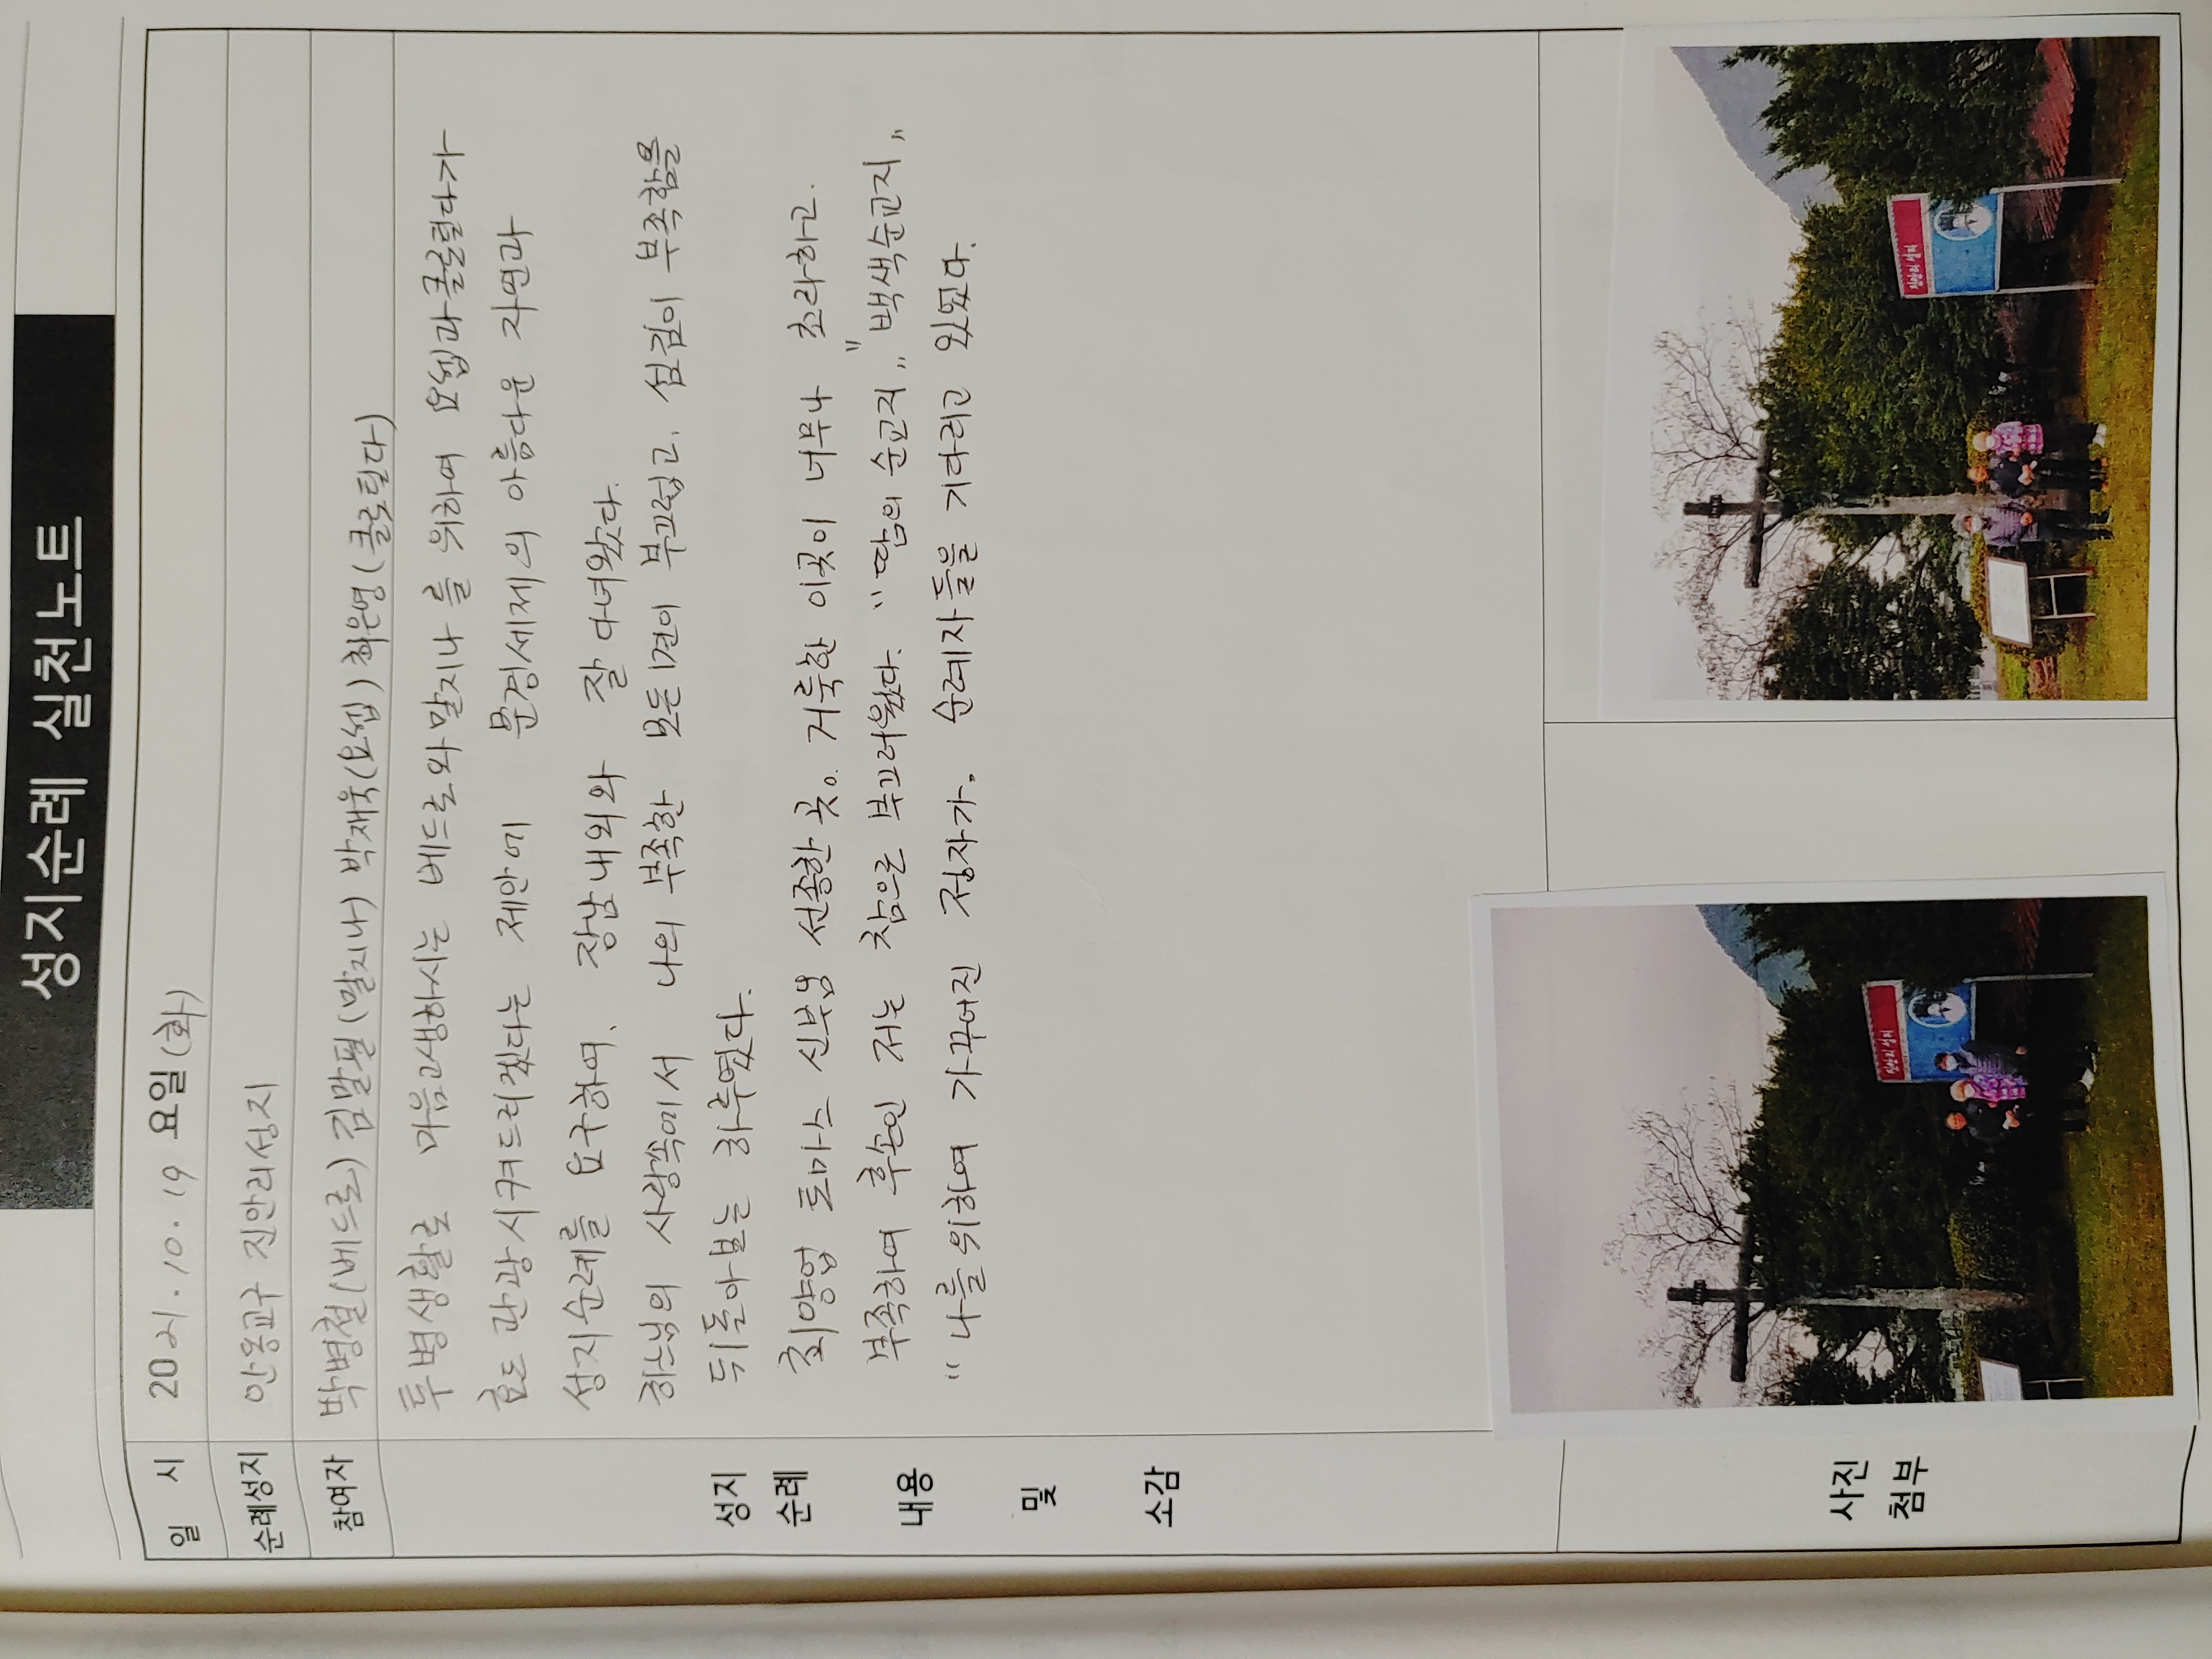 성지순례 실천노트
일 시 2021.10.19 요일(화)
순례성지 안동교구 진안리성지
참여자 박병철(베드로) 김말필(말지나) 박재욱(요셉) 최은영(클로틸다)
투병생활로 마음고생하시는 베드로와 말지나를 위하여 요셉과클로틸다가
효도 관광시켜드리겠다는 제안에 문경세제의 아름다운 자연과
성지순례를 요구하여, 장남내외와 잘 다녀왔다.
하느님의 사랑속에서 나의 부족한 모든 부끄럽고, 섬김이 부족함을
뒤돌아보는 하루였다.
최양업 토마스 신부님 선종한 곳. 거룩한 이곳이 너무나 초라하고.
부족하여 후손인 저는 참으로 부끄러웠다. "땀의 순교지" "백색순교지"
"나를위하여 가꾸어진 정자가. 순례자들을 기다리고 있었다.
성지
순례
내용
및
소감
사진
첨부
진안리 성지
진안리 성지